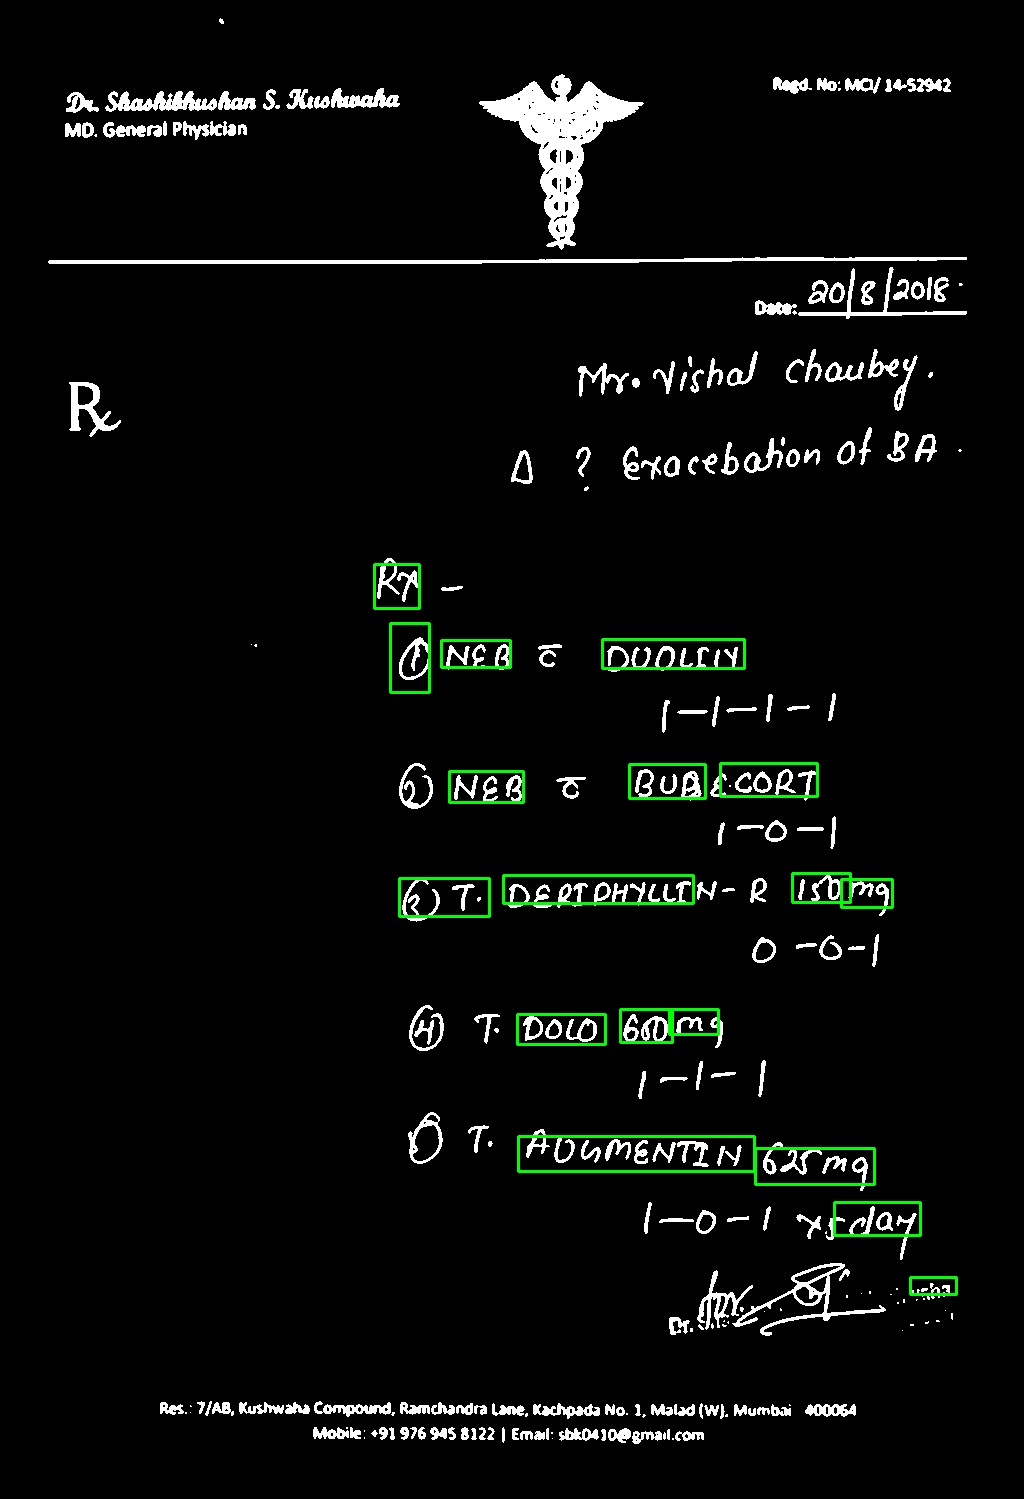 Dr. Shashibhushan S. Kushwaha
MD. General Physician
Regd. No: MCI/ 14-52942
Date: 20/8/2018
Rx
Mr. Vishal Chaubey.
Δ ? Exacebation of BA.
Rx –
① NEB c̄ DUOLIN
1–1–1–1
② NEB c̄ BUDECORT
1–0–1
③ T. DERIPHYLLIN-R 150mg
0–0–1
④ T. DOLO 650mg
1–1–1
T. AUGMENTIN 625mg
1–0–1 x 5 day
Dr.
Res.: 7/AB, Kushwaha Compound, Ramchandra Lane, Kachpada No. 1, Malad (W), Mumbai 400064
Mobile: +91 976 945 8122 | Email: sbk0410@gmail.com